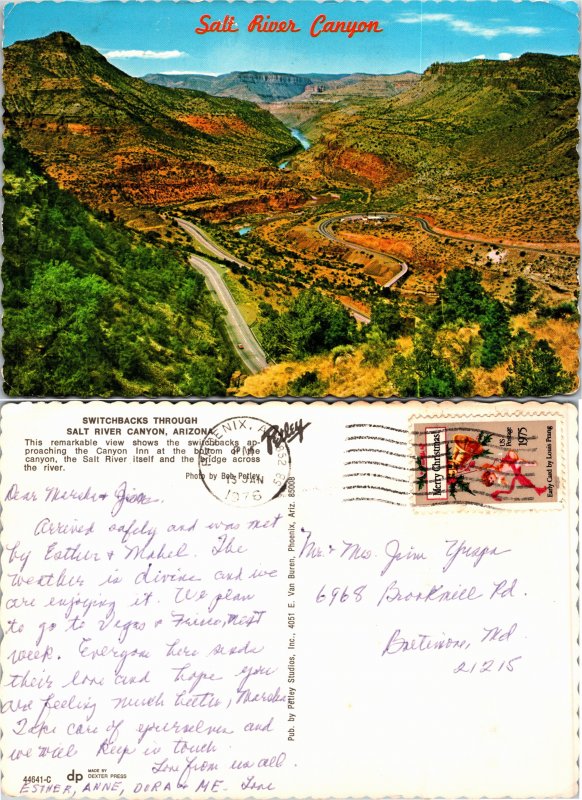 Salt River Canyon
SWITCHBACKS THROUGH
SALT RIVER CANYON, ARIZONA
This remarkable view shows the switchbacks ap-
proaching the Canyon Inn at the bottom of the
canyon, the Salt River itself and the bridge across
the river.
Photo by Bob Petley
Petley
PHOENIX, A
PM
15 JAN
1976
Merry Christmas!
US Postage 1975
Early Card by Louis Prang
Dear Marsha & Jim,
Arrived safely and was met
by Esther & Mabel. The
weather is divine and we
are enjoying it. We plan
to go to Vegas & next
week. Everyone here sends
their love and hope you
are feeling much better, Marsha
Take care of yourselves and
we will keep in touch.
Love from us all.
ESTHER, ANNE, DORA & ME. Love
Mr & Mrs. Jim
6968 Brookmill Rd.
Baltimore, Md
21215
Pub. by Petley Studios, Inc., 4051 E. Van Buren, Phoenix, Ariz. 85008
44641-C
dp MADE BY
DEXTER PRESS